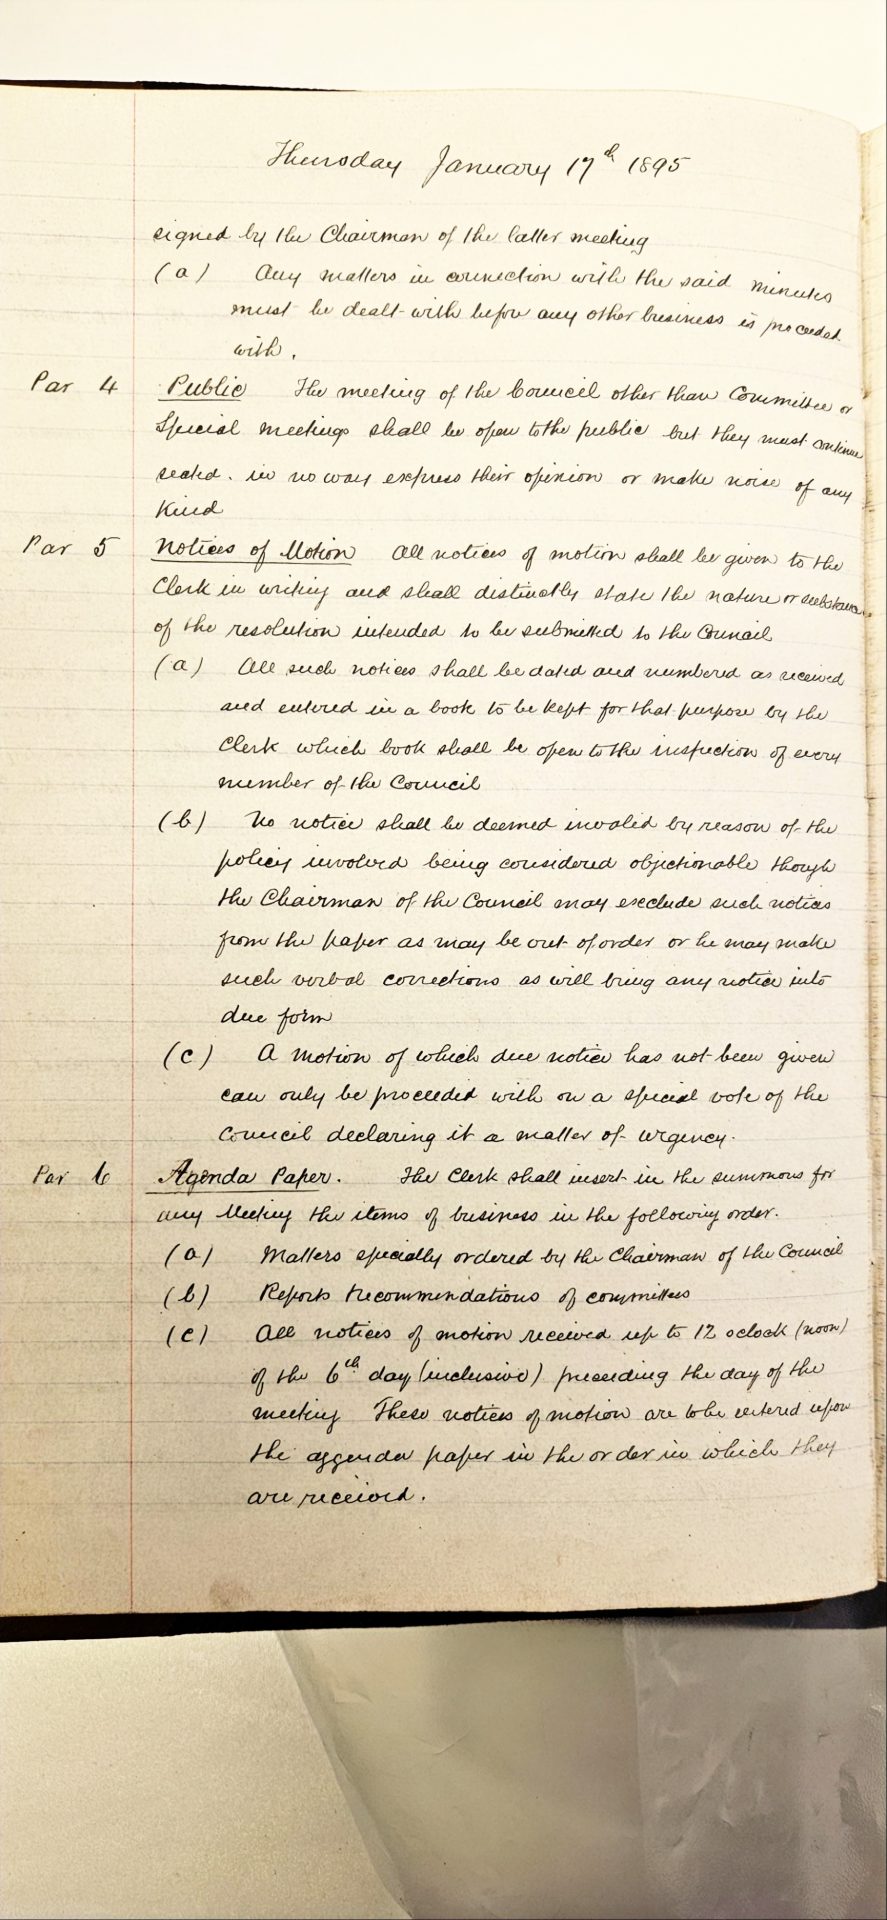 Thursday January 17th 1895
signed by the Chairman of the latter meeting
(a) Any matters in connection with the said minutes
must be dealt with before any other business is proceeded
with.
Par 4 Public The meeting of the Council other than Committee or
Special meetings shall be open to the public but they must continue
seated. in no way express their opinion or make noise of any
kind
Par 5 Notices of Motion All notices of motion shall be given to the
Clerk in writing and shall distinctly state the nature or substance
of the resolution intended to be submitted to the Council
(a) All such notices shall be dated and numbered as received
and entered in a book to be kept for that purpose by the
Clerk which book shall be open to the inspection of every
member of the Council
(b) No notice shall be deemed invalid by reason of the
policy involved being considered objectionable though
the Chairman of the Council may exclude such notices
from the paper as may be out of order or he may make
such verbal corrections as will bring any notice into
due form
(c) A motion of which due notice has not been given
can only be proceeded with on a special vote of the
Council declaring it a matter of urgency.
Par 6 Agenda Paper. The Clerk shall insert in the summons for
any Meeting the items of business in the following order.
(a) Matters specially ordered by the Chairman of the Council
(b) Reports & recommendations of committees
(c) All notices of motion received up to 12 oclock (noon)
of the 6th day (inclusive) preceding the day of the
meeting These notices of motion are to be entered upon
the aggenda paper in the order in which they
are received.